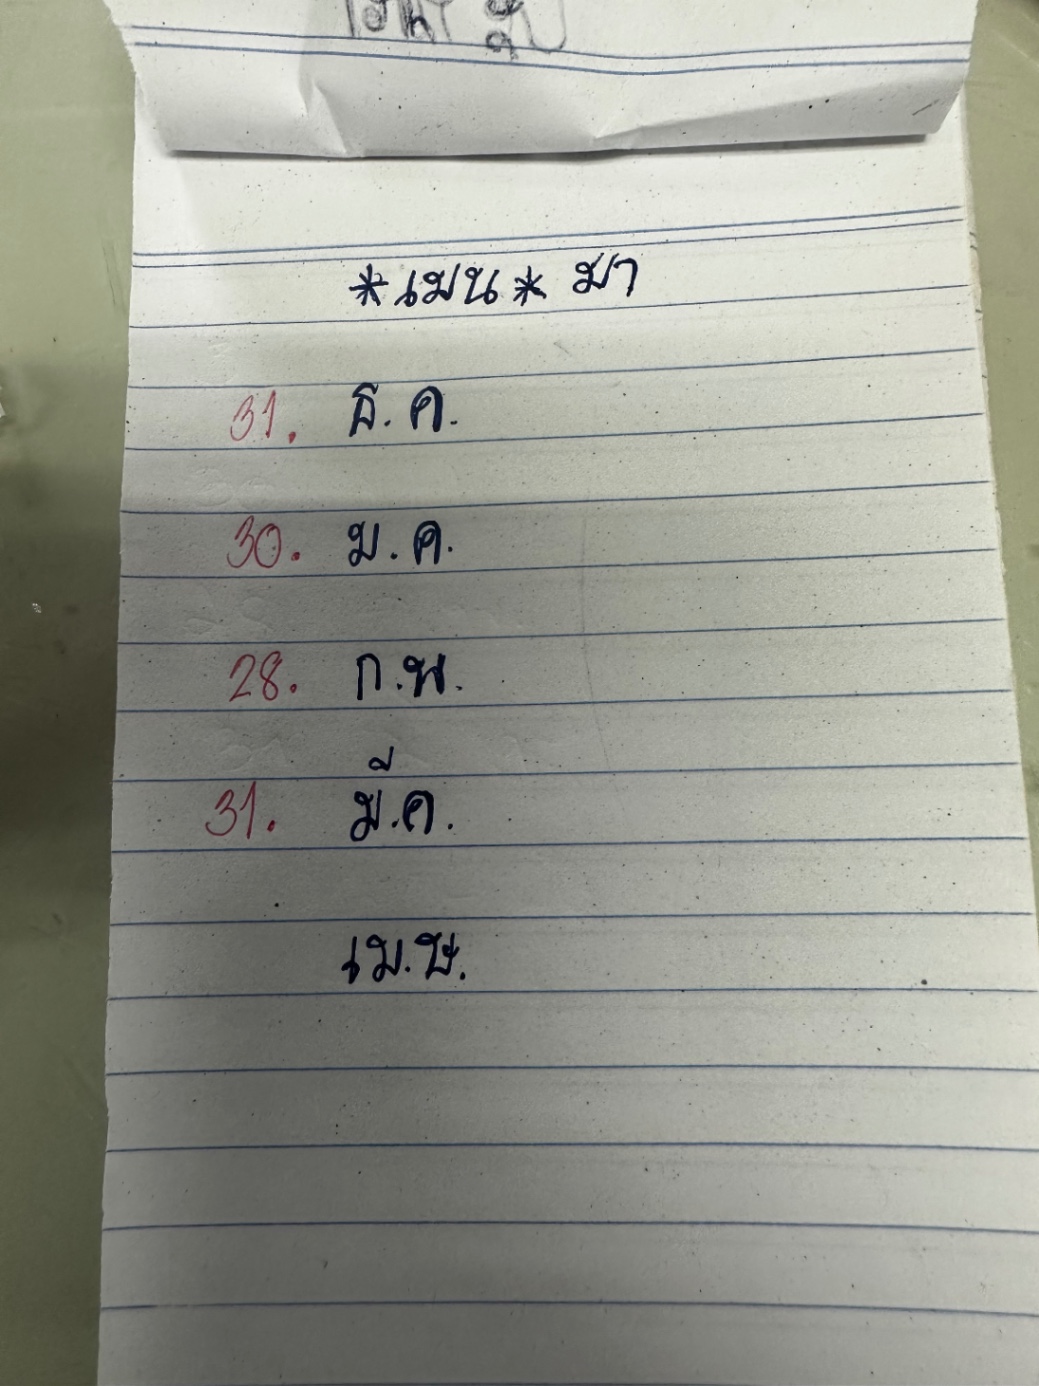 *เมน* มา
31. ธ.ค.
30. ม.ค.
28. ก.พ.
31. มี.ค.
เม.ษ.